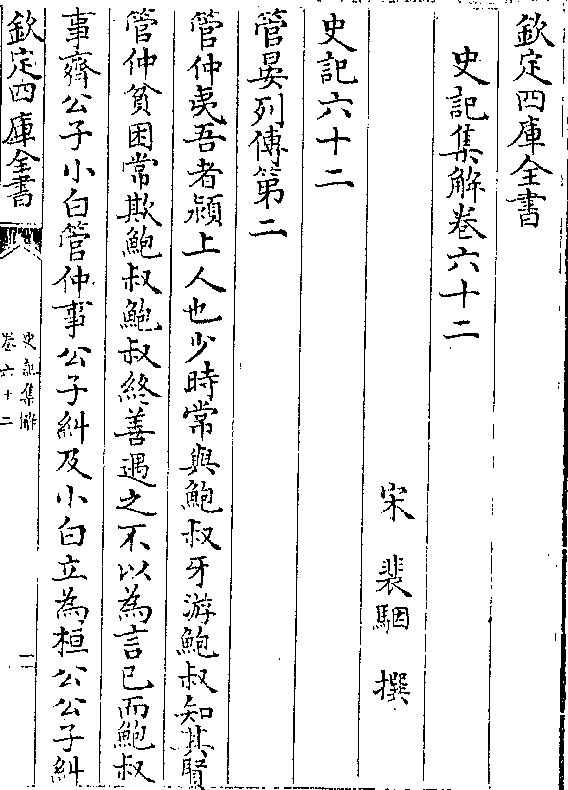 欽定四庫全書
史記集解卷六十二
宋 裴駰 撰
史記六十二
管晏列傳第二
管仲夷吾者潁上人也少時常與鮑叔牙游鮑叔知其賢
管仲貧困常欺鮑叔鮑叔終善遇之不以為言已而鮑叔
事齊公子小白管仲事公子糾及小白立為桓公公子糾
欽定四庫全書
史記集解
卷六十二
一